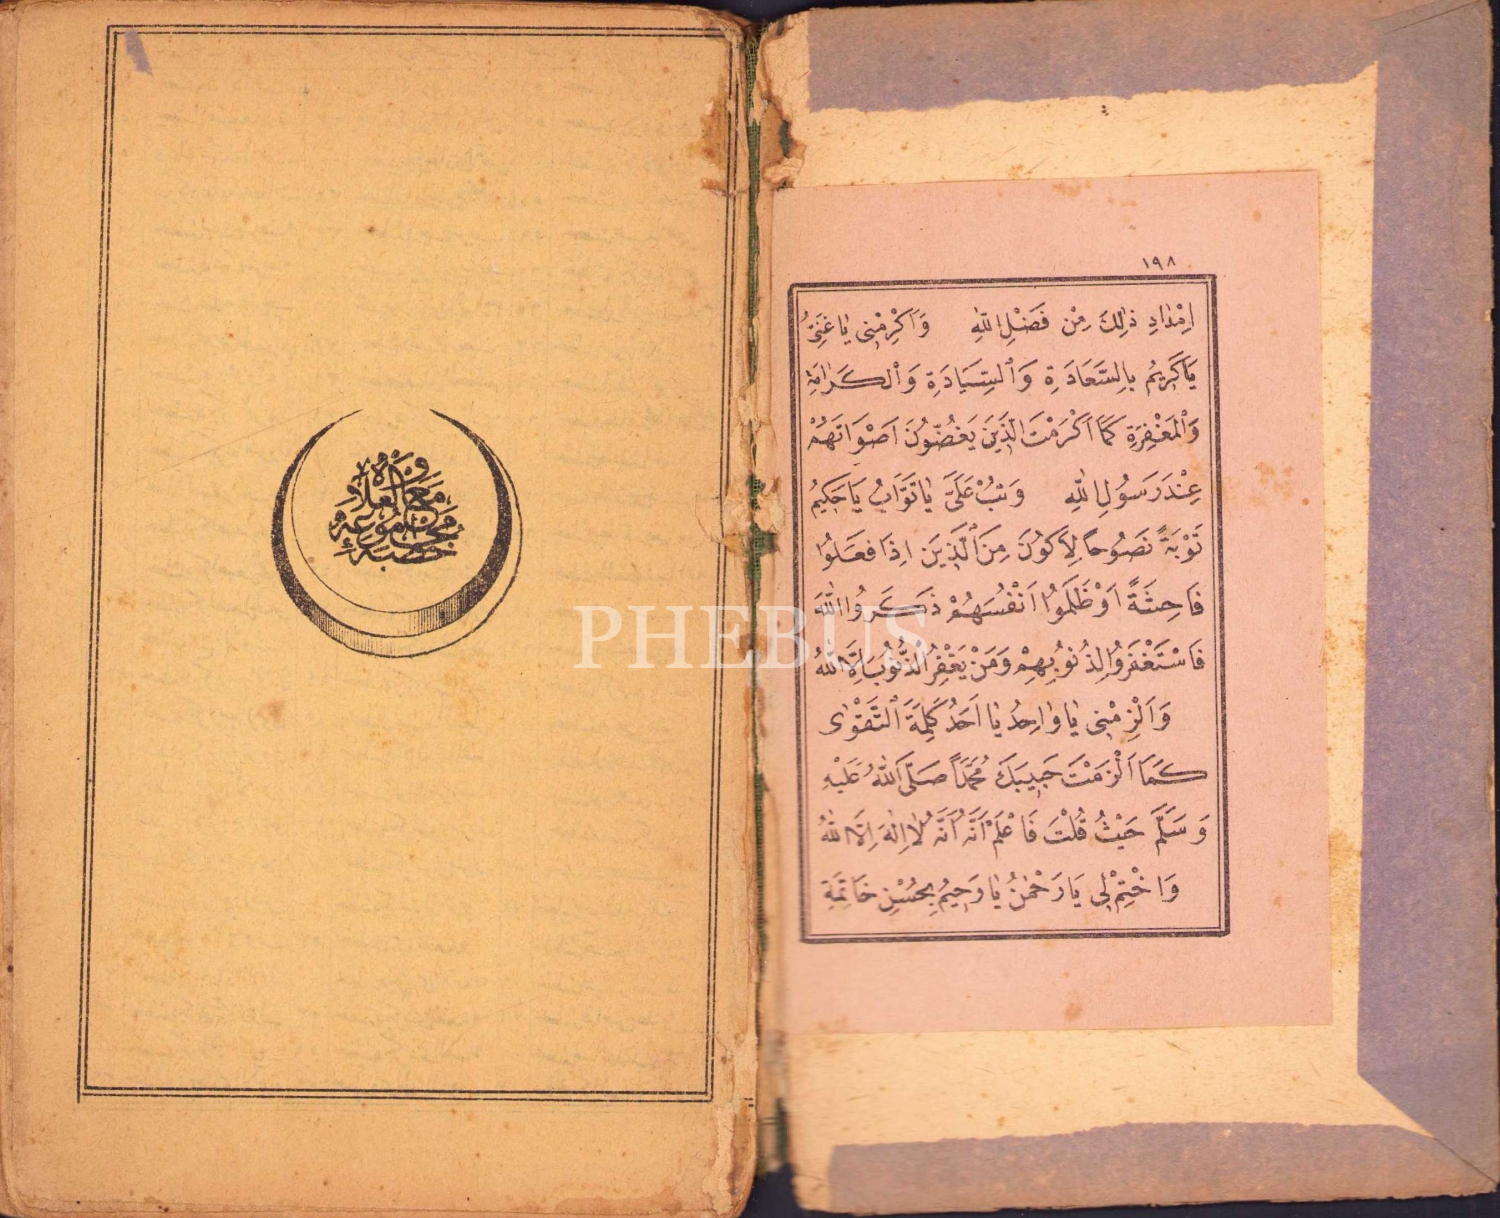 ١٩٨
اِمْدَادِ ذٰلِكَ مِنْ فَضْلِ اللّٰهِ وَاَكْرِمْنِى يَا غَنِىُّ
يَاكَرِيمُ بِالسَّعَادَةِ وَالسِّيَادَةِ وَالْكَرَامَةِ
وَالْمَغْفِرَةِ كَمَا اَكْرَمْتَ الَّذِينَ يَغُضُّونَ اَصْوَاتَهُمْ
عِنْدَ رَسُولِ اللّٰهِ وَتُبْ عَلَىَّ يَا تَوَّابُ يَا حَكِيمُ
تَوْبَةً نَصُوحًا لِاَكُونَ مِنَ الَّذِينَ اِذَا فَعَلُوا
فَاحِشَةً اَوْ ظَلَمُوا اَنْفُسَهُمْ ذَكَرُوا اللّٰهَ
فَاسْتَغْفَرُوا لِذُنُوبِهِمْ وَمَنْ يَغْفِرُ الذُّنُوبَ اِلَّا اللّٰهُ
وَاَلْزِمْنِى يَا وَاحِدُ يَا اَحَدُ كَلِمَةَ التَّقْوٰى
كَمَا اَلْزَمْتَ حَبِيبَكَ مُحَمَّدًا صَلَّى اللّٰهُ عَلَيْهِ
وَسَلَّمَ حَيْثُ قُلْتَ فَاعْلَمْ اَنَّهُ اَنَّهُ لَا اِلٰهَ اِلَّا اللّٰهُ
وَاخْتِمْ لِى يَا رَحْمٰنُ يَا رَحِيمُ بِحُسْنِ خَاتِمَةِ
مجموعه
خطبه
PHEBUS